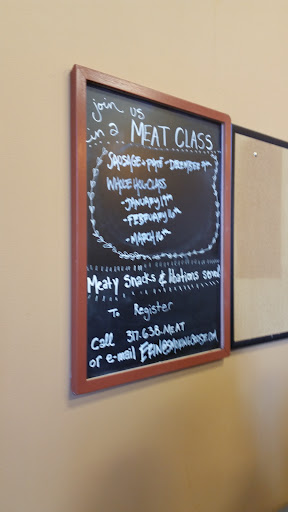 join us
in a MEAT CLASS
SAUSAGE + PATÉ - DECEMBER
WHOLE HOG CLASS
-JANUARY 19th
-FEBRUARY 16th
-MARCH 16th
Meaty Snacks & libations served
To Register
Call 317.638.MEAT
or e-mail